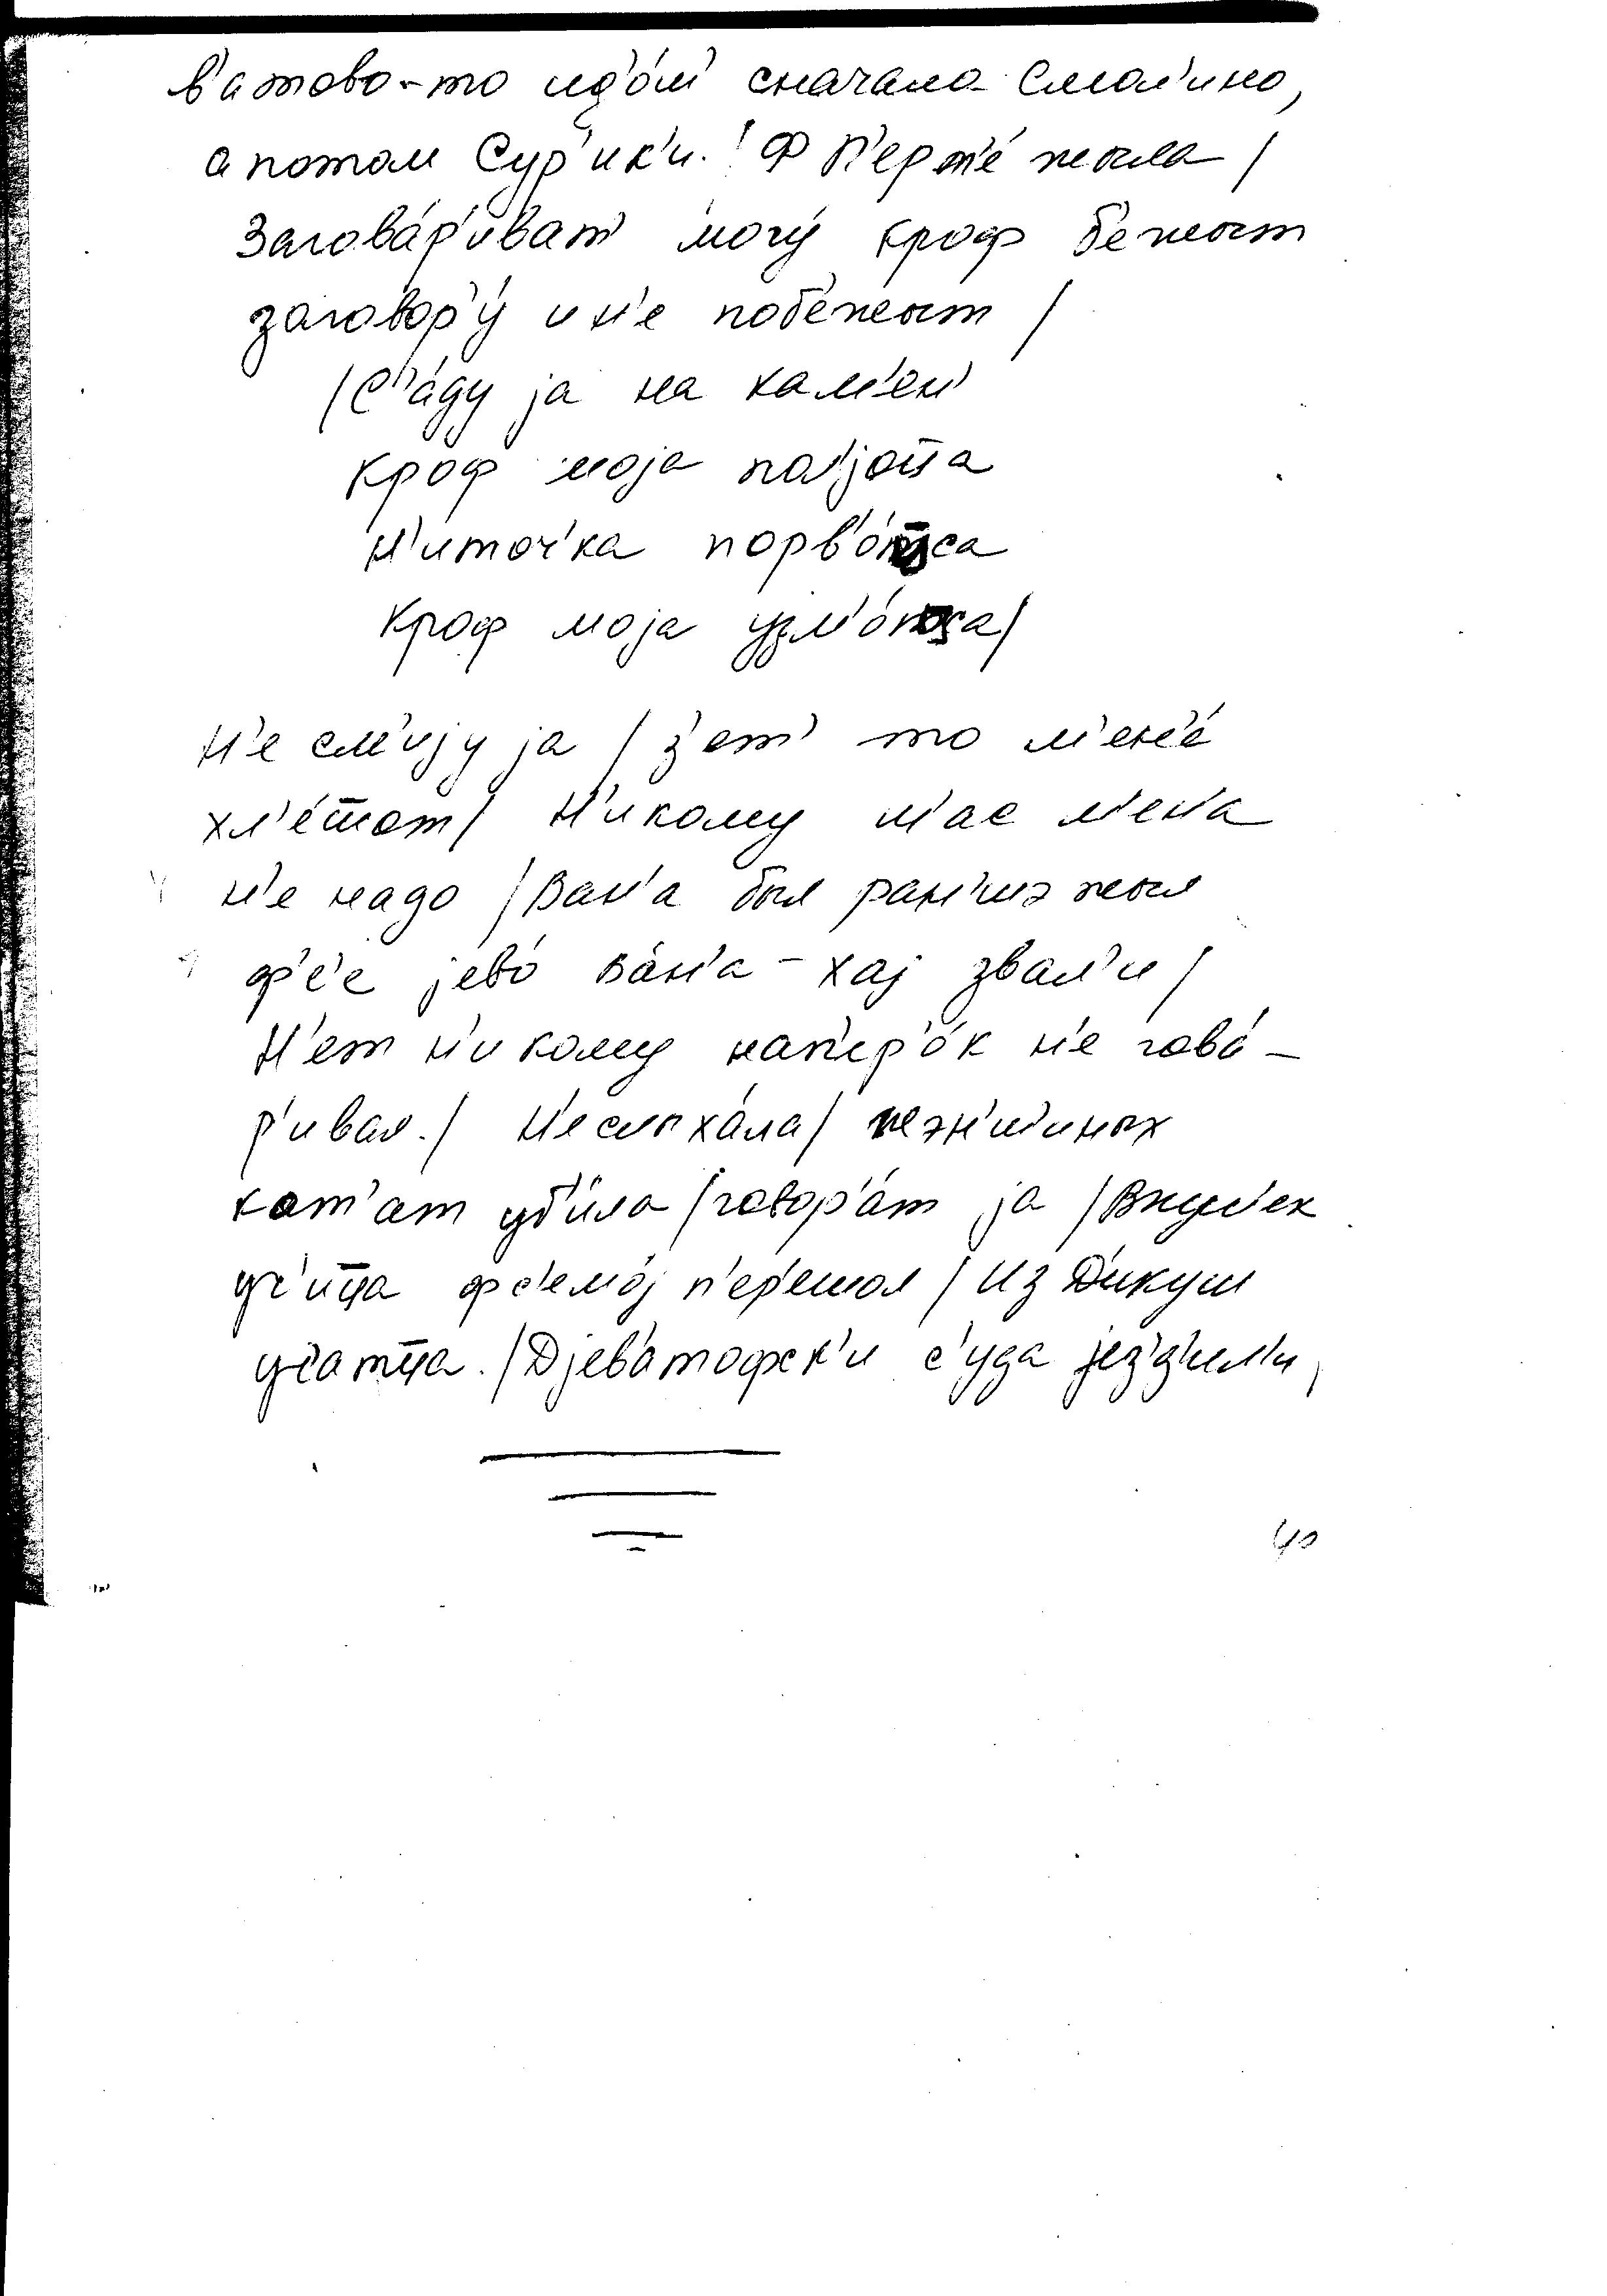 в'атово-то ид'о́м сначала Смол'ино,
а потом Сур'ик'и. / Ф П'ерт'е́ жыла /
Заговáр'иват' могу́ кроф б'ежыт
заговор'у́ и н'е поб'ежыт /
/ С'áду ја на кам'ен'
кроф моја пол'јо̄т̄а
Н'иточ'ка порв'о́тса
кроф моја ујм'о́тса /
Н'е см'ију ја / з'ет' то м'ен'е́
хл'е́шот / Н'икому м'ас м'ен'а
н'е надо / Ван'а был ран'шэ жыл
ф'с'е јево́ Вáн'а - хај звал'и /
Н'ет н'икому нап'ер'о́к н'е гово́ -
р'ивал. / Н'е слыхáла /
кот'ат уб'ила / говор'áт ја / Внуч'ек
уч'ица фс'емо́ј п'ер'ешол / Из Д'икуш
уч'атца. / Дјев'áтофск'и с'уда јез'д'ил'и,
40